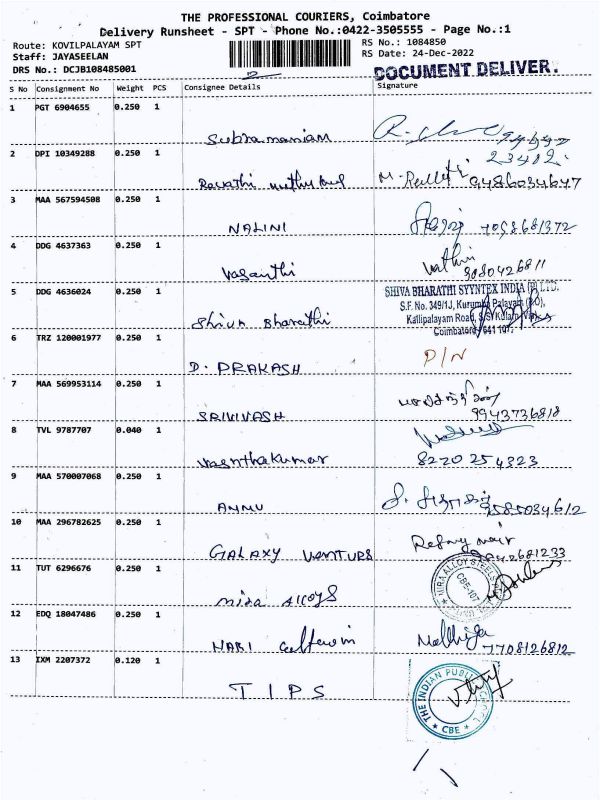 THE PROFESSIONAL COURIERS, Coimbatore
Delivery Runsheet - SPT - Phone No.:0422-3505555 - Page No.:1
Route: KOVILPALAYAM SPT
RS No.: 1084850
Staff: JAYASEELAN
RS Date: 24-Dec-2022
DRS No.: DCJB108485001
DOCUMENT DELIVER.
S No Consignment No Weight PCS Consignee Details Signature
1 PGT 6904655 0.250 1
Subramaniam
2 DPI 10349288 0.250 1
9486034647
3 MAA 567594508 0.250 1
NALINI 7098681372
4 DDG 4637363 0.250 1
Vasanthi 9080426811
5 DDG 4636024 0.250 1
SHIVA BHARATHI SYYNTEX INDIA (P) LTD.
S.F. No. 349/1J, Kurumba Palayam (P.O),
Kallipalayam Road, S.S. Kulam
Coimbatore - 641 107.
Shiva Bharathi
6 TRZ 120001977 0.250 1
P/N
D. PRAKASH
7 MAA 569953114 0.250 1
SRIVIVASH 9943736818
8 TVL 9787707 0.040 1
Vasanthakumar 8220254323
9 MAA 570007068 0.250 1
AMMU 9585034612
10 MAA 296782625 0.250 1
GALAXY VENTURS 9842681233
11 TUT 6296676 0.250 1
MIRA ALLOY STEELS
CBE-107
Mira Alloys
12 EDQ 18047486 0.250 1
HARI 7708126812
13 IXM 2207372 0.120 1
THE INDIAN PUBLIC SCHOOL
CBE
TIPS